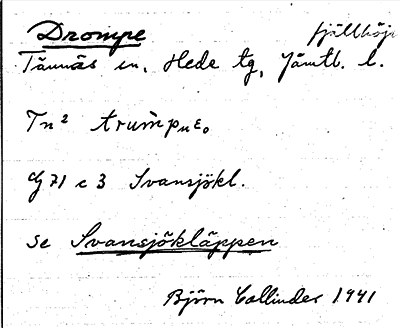 Drompe fjällhöjd
Tännäs sn, Hede tg, Jämtl. l.
Tn²
G 71 c 3 Svansjökl.
se Svansjökläppen
Björn Collinder 1941